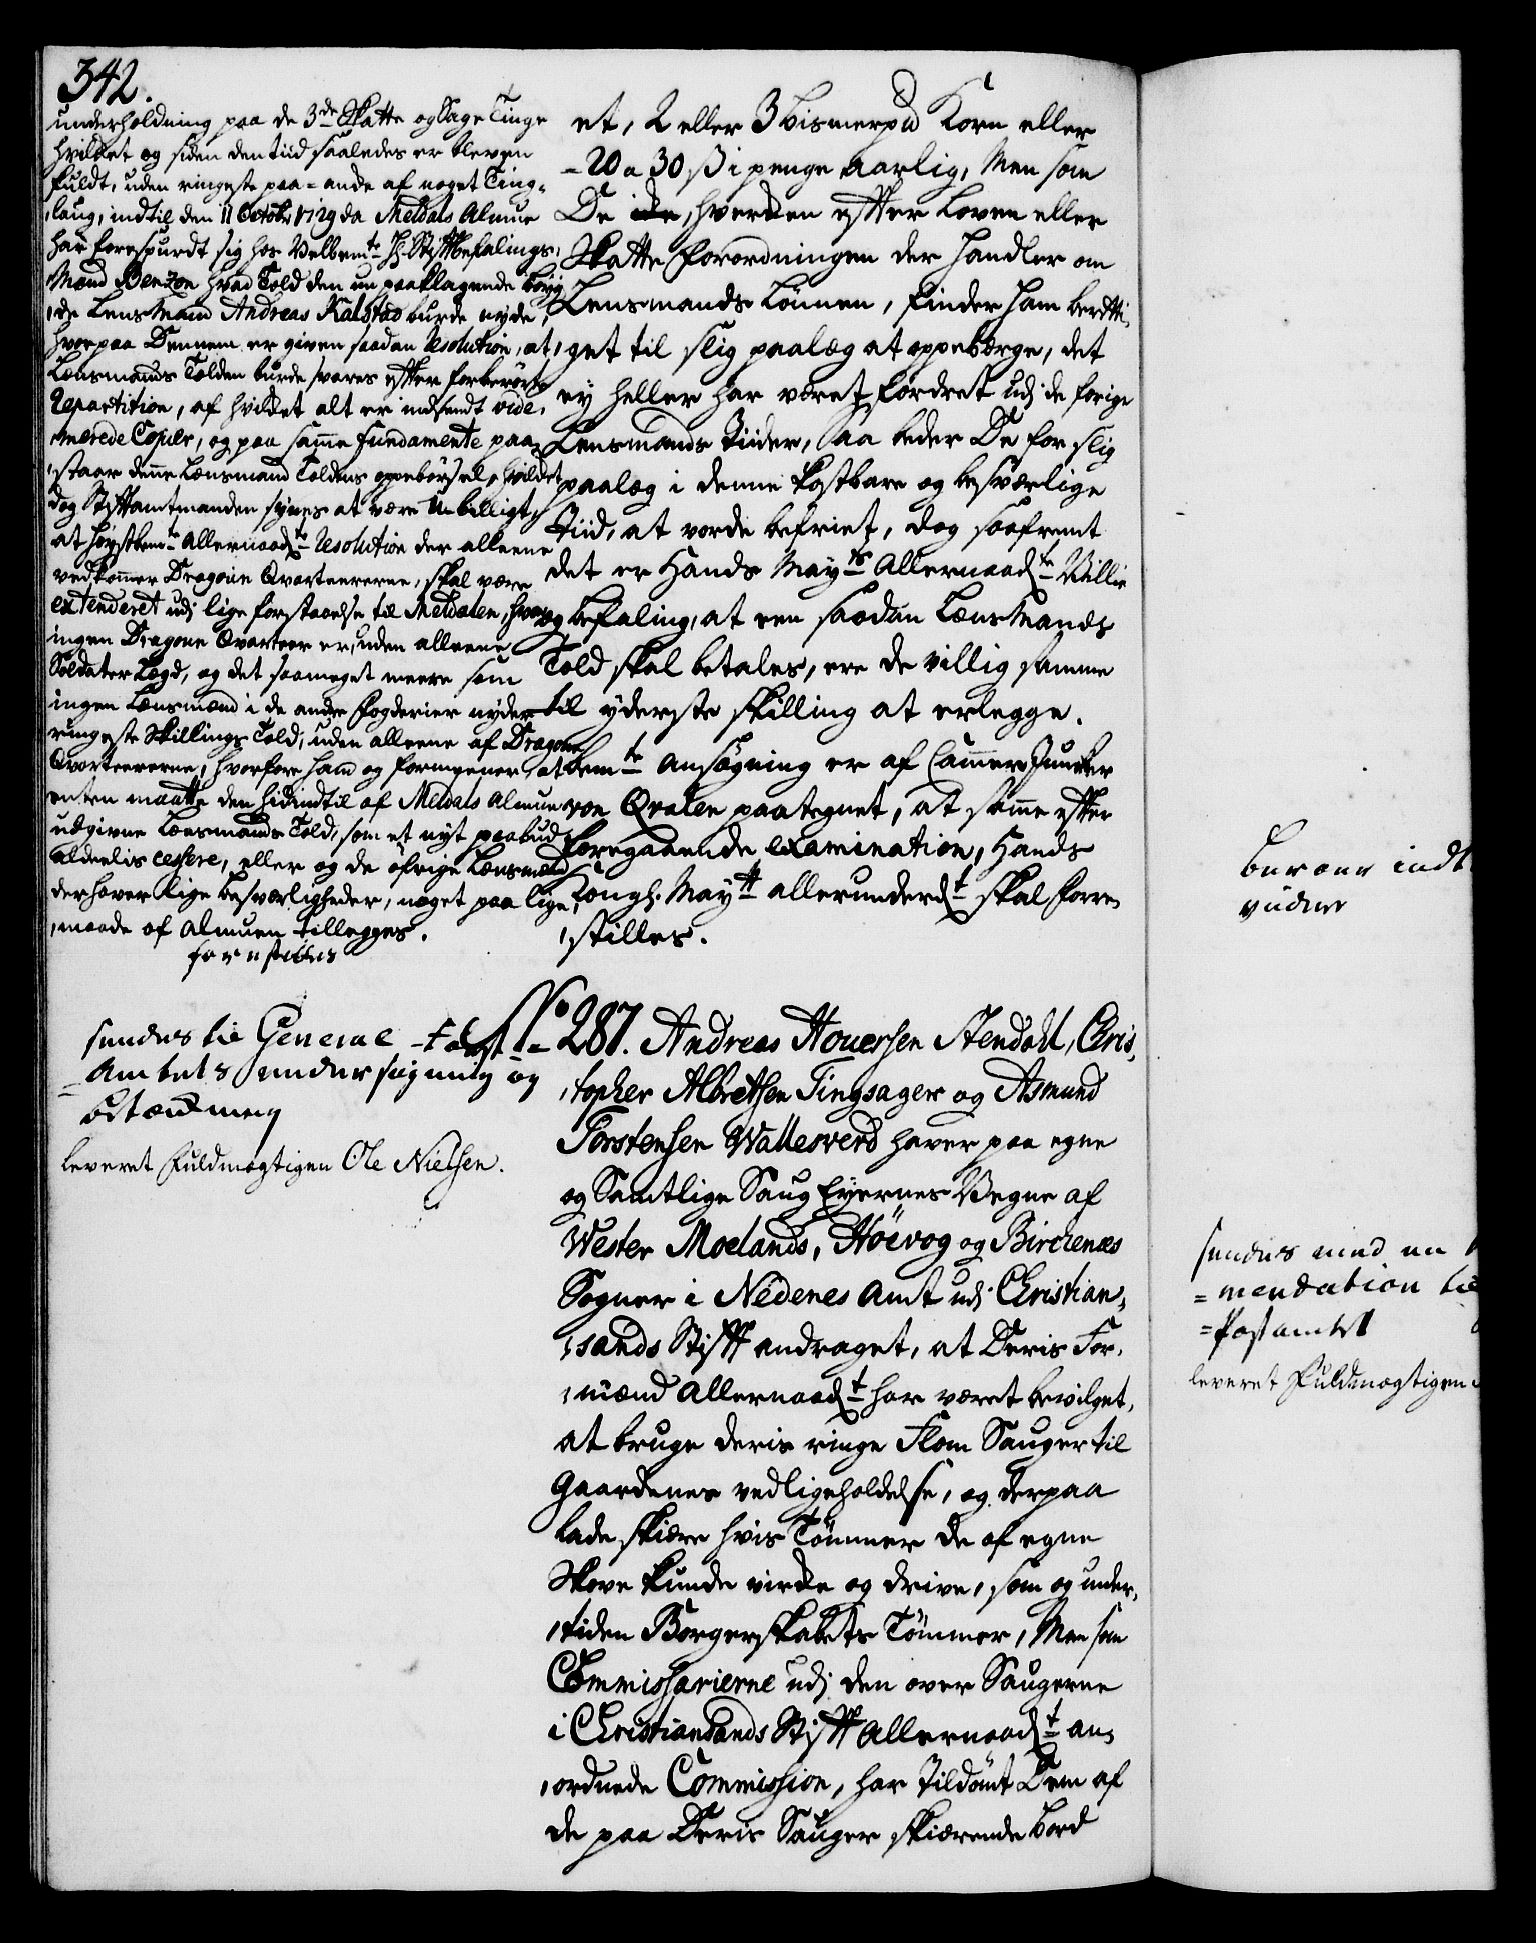 342.
underholdning paa de 3de Skatte og Sage Tinge
hvilket og siden den tiid saaledes er bleven
fuldt, uden ringeste paa-ande af noget Ting-
laug, indtil den 11 Octobr 1729 da Meldals Almue
har forespurdt sig hos Velbemte Hr. Stiftbefalings-
Mand Benzon hvad Told den nu paaklagende Bøyg-
de LensMand Andreas Kalstad burde nyde,
hvorpaa Dennem er given saadan Resolution, at
Lænsmands Tolden burde svares efter forberørte
Repartition, af hvilket alt er indsendt vide-
merede Copier, og paa samme fundamente paa-
staar denne Lænsmand Toldens oppebørsel, hvilket
dog Stiftamtmanden synes at være u-billigt,
at høystbemte allernaadste Resolution der alleene
vedkommer Dragoun Qvarteererne, skal være
extenderet udj lige forstaaelse til Meldalen, hvor
ingen Dragoun Qvarteer er, uden alleene
Soldater Lægd, og det saameget meere som
ingen Lænsmænd i de andre Fogderier nyder
ringeste Skillings Told, uden alleene af Dragoun
Qvarteererne, hvorfore hand og formeener at
enten maatte den hidindtil af Meldals Almue
udgivne Lænsmands Told, som et nyt paabud
aldeelis cessere, eller og de øfrige Lænsmænd
der haver lige besværligheder, noget paa lige-
maade af Almuen tillegges.
forestilles
et, 2 eller 3 bismerpd Korn eller
- 20 a 30 ß i penge aarlig, Men som
De icke, hverken efter Loven eller
Skatte Forordningen der handler om
Lensmands Lønnen, finder ham beretti-
get til slig paalæg at oppebærge, det
ey heller har været fordret udj de forige
Lensmands Tiider, Saa beder De for slig
paalæg i denne kostbare og besværlige
Tiid, at vorde befriet, dog saafremt
det er Hands Mayts Allernaadste Villie
og befaling, at een saadan LænsMands
Told skal betales, ere de villig samme
til yderste skilling at erlegge.
bemte ansøgning er af CammerJuncker
von Qvalen paategnet, at samme efter
foregaaende examination, Hands
Kongl. Maytt allerunderdt skal forre-
stilles.
sendes til General-Forst-
-Ambtets undersøgning og
betænkning
leveret Fuldmægtigen Ole Nielsen.
No 287. Andreas Aouersen Stendahl, Chris-
topher Albretsen Tingsager og Asmund
Torstensen Wallesverd haver paa egne
og Samtlige Saug Eyernes Vegne af
Wester Moelands, Høevog og Birckenæs
Sogner i Nedenes Amt udj Christian-
sands Stift andraget, at Deris For-
mænd Allernaadt har været bevilget,
at bruge deris ringe Flom Sauger til
Gaardenes vedligeholdelse, og derpaa
lade skiære hvis Tømmer de af egne
Skove kunde virke og drive, som og under-
tiden Borgerskabets Tømmer, Men som
Commissarierne udj den over Saugerne
i Christiansands Stift Allernaadt an-
ordnede Commission, har Tildømt Dem af
de paa Deris Sauger skiærende bord
sendes med en
-mendation til
-Postamtet
leveret Fuldmægtigen